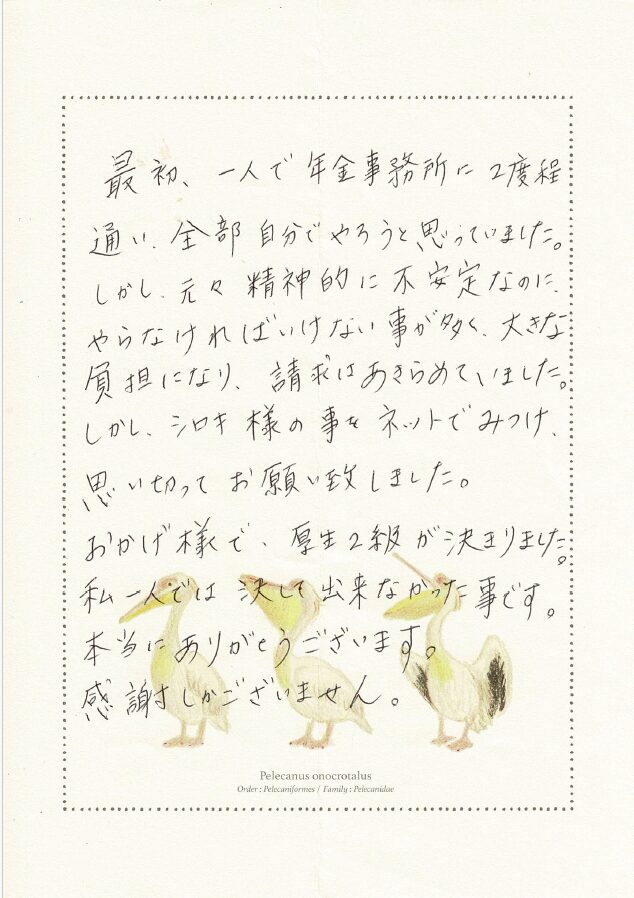 最初、一人で年金事務所に2度程
通い、全部自分でやろうと思っていました。
しかし、元々精神的に不安定なのに、
やらなければいけない事が多く、大きな
負担になり、請求はあきらめていました。
しかし、シロキ様の事をネットでみつけ、
思い切ってお願い致しました。
おかげ様で、厚生2級が決まりました。
私一人では決して出来なかった事です。
本当にありがとうございます。
感謝しかございません。
Pelecanus onocrotalus
Order : Pelecaniformes / Family : Pelecanidae